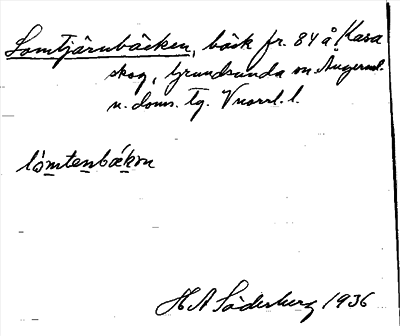 Lomtjärnbäcken, bäck fr. 84 å Kasa
skog, Grundsunda sn. Ångerml.
n. doms. Tg. Vnorrl. l.
lòmtenbækɷn
H A Söderberg 1936